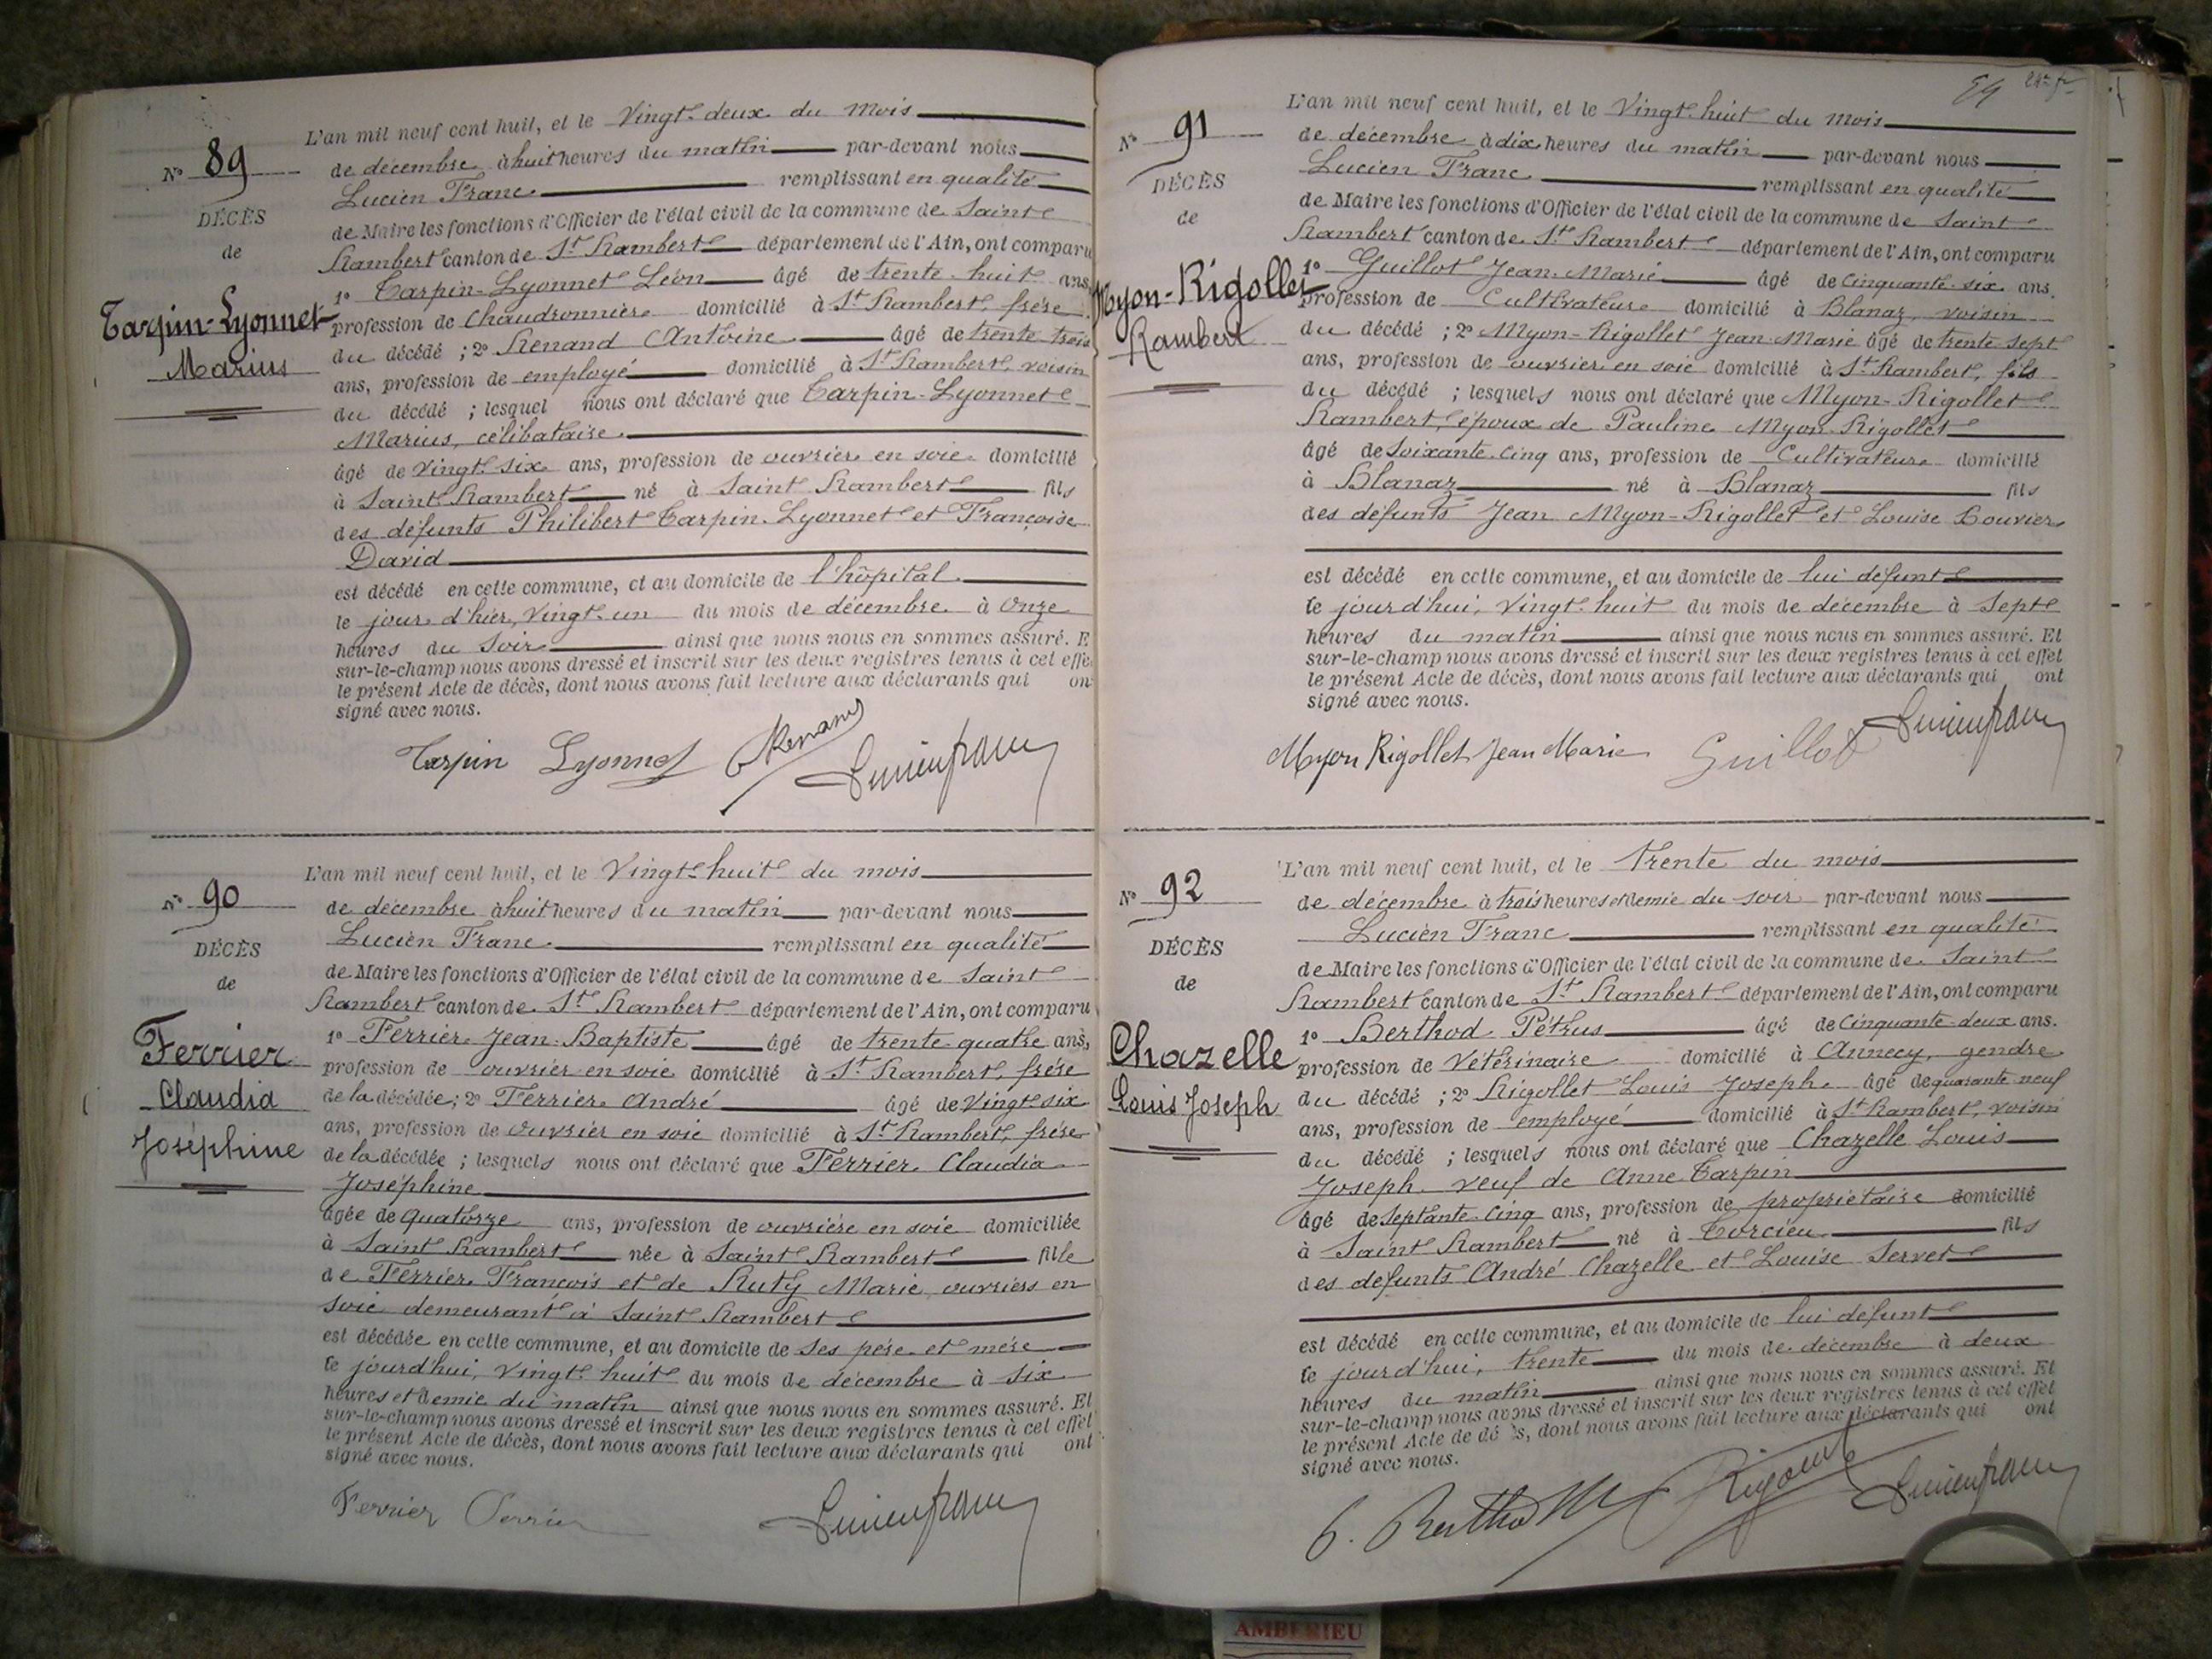 Nº 89
DÉCÈS
de
Tarpin-Lyonnet
Marius
L'an mil neuf cent huit, et le Vingt-deux du mois
de décembre à huit heures du matin par-devant nous
Lucien Franc remplissant en qualité
de Maire les fonctions d'Officier de l'état civil de la commune de Saint
Rambert canton de St Rambert département de l'Ain, ont comparu
1º Tarpin-Lyonnet Léon âgé de trente-huit ans,
profession de Chaudronnier domicilié à St Rambert, frère
du décédé ; 2º Renand Antoine âgé de trente trois
ans, profession de employé domicilié à St Rambert, voisin
du décédé ; lesquel nous ont déclaré que Tarpin-Lyonnet
Marius, célibataire
âgé de vingt-six ans, profession de ouvrier en soie domicilié
à Saint Rambert né à Saint Rambert fils
des défunts Philibert Tarpin-Lyonnet et Françoise
David
est décédé en cette commune, et au domicile de l'hôpital
le jour d'hier, vingt-un du mois de décembre à Onze
heures du soir ainsi que nous nous en sommes assuré. E
sur-le-champ nous avons dressé et inscrit sur les deux registres tenus à cet effe
le présent Acte de décès, dont nous avons fait lecture aux déclarants qui on
signé avec nous.
Tarpin Lyonnet Renand Lucien franc
Nº 90
DÉCÈS
de
Ferrier
Claudia
Joséphine
L'an mil neuf cent huit, et le Vingt-huit du mois
de décembre à huit heures du matin par-devant nous
Lucien Franc remplissant en qualité
de Maire les fonctions d'Officier de l'état civil de la commune de Saint
Rambert canton de St Rambert département de l'Ain, ont comparu
1º Ferrier Jean-Baptiste âgé de trente-quatre ans,
profession de ouvrier en soie domicilié à St Rambert, frère
de la décédée ; 2º Ferrier André âgé de Vingt-six
ans, profession de ouvrier en soie domicilié à St Rambert, frère
de la décédée ; lesquels nous ont déclaré que Ferrier Claudia
Joséphine
âgée de quatorze ans, profession de ouvrière en soie domiciliée
à Saint Rambert née à Saint Rambert fille
de Ferrier François et de Ruty Marie, ouvriers en
soie demeurant à Saint Rambert
est décédée en cette commune, et au domicile de ses père et mère
le jourd'hui, vingt-huit du mois de décembre à six
heures et demie du matin ainsi que nous nous en sommes assuré. Et
sur-le-champ nous avons dressé et inscrit sur les deux registres tenus à cet effet
le présent Acte de décès, dont nous avons fait lecture aux déclarants qui ont
signé avec nous.
Ferrier Ferrier Lucien franc
Nº 91
DÉCÈS
de
Myon-Rigollet
Rambert
L'an mil neuf cent huit, et le Vingt-huit du mois
de décembre à dix heures du matin par-devant nous
Lucien Franc remplissant en qualité
de Maire les fonctions d'Officier de l'état civil de la commune de Saint
Rambert canton de St Rambert département de l'Ain, ont comparu
1º Guillot Jean-Marie âgé de Cinquante-six ans.
profession de Cultivateur domicilié à Blanaz, voisin
du décédé ; 2º Myon-Rigollet Jean-Marie âgé de trente sept
ans, profession de ouvrier en soie domicilié à St Rambert, fils
du décédé ; lesquels nous ont déclaré que Myon-Rigollet
Rambert, époux de Pauline Myon-Rigollet
âgé de Soixante-cinq ans, profession de Cultivateur domicilié
à Blanaz né à Blanaz fils
des défunts Jean Myon-Rigollet et Louise Bouvier
est décédé en cette commune, et au domicile de lui défunt
le jourd'hui, vingt-huit du mois de décembre à sept
heures du matin ainsi que nous nous en sommes assuré. Et
sur-le-champ nous avons dressé et inscrit sur les deux registres tenus à cet effet
le présent Acte de décès, dont nous avons fait lecture aux déclarants qui ont
signé avec nous.
Myon Rigollet Jean Marie Guillot Lucien franc
Nº 92
DÉCÈS
de
Chazelle
Louis Joseph
L'an mil neuf cent huit, et le trente du mois
de décembre à trois heures et demie du soir par-devant nous
Lucien Franc remplissant en qualité
de Maire les fonctions d'Officier de l'état civil de la commune de Saint
Rambert canton de St Rambert département de l'Ain, ont comparu
1º Berthod Pétrus âgé de Cinquante-deux ans.
profession de Vétérinaire domicilié à Annecy, gendre
du décédé ; 2º Rigollet Louis Joseph âgé de quarante neuf
ans, profession de employé domicilié à St Rambert, voisin
du décédé ; lesquels nous ont déclaré que Chazelle Louis
Joseph veuf de Anne Tarpin
âgé de septante-cinq ans, profession de propriétaire domicilié
à Saint Rambert né à Torcieu fils
des défunts André Chazelle et Louise Servet
est décédé en cette commune, et au domicile de lui défunt
le jourd'hui, trente du mois de décembre à deux
heures du matin ainsi que nous nous en sommes assuré. Et
sur-le-champ nous avons dressé et inscrit sur les deux registres tenus à cet effet
le présent Acte de dé ès, dont nous avons fait lecture aux déclarants qui ont
signé avec nous.
Lucien franc
AMBERIEU